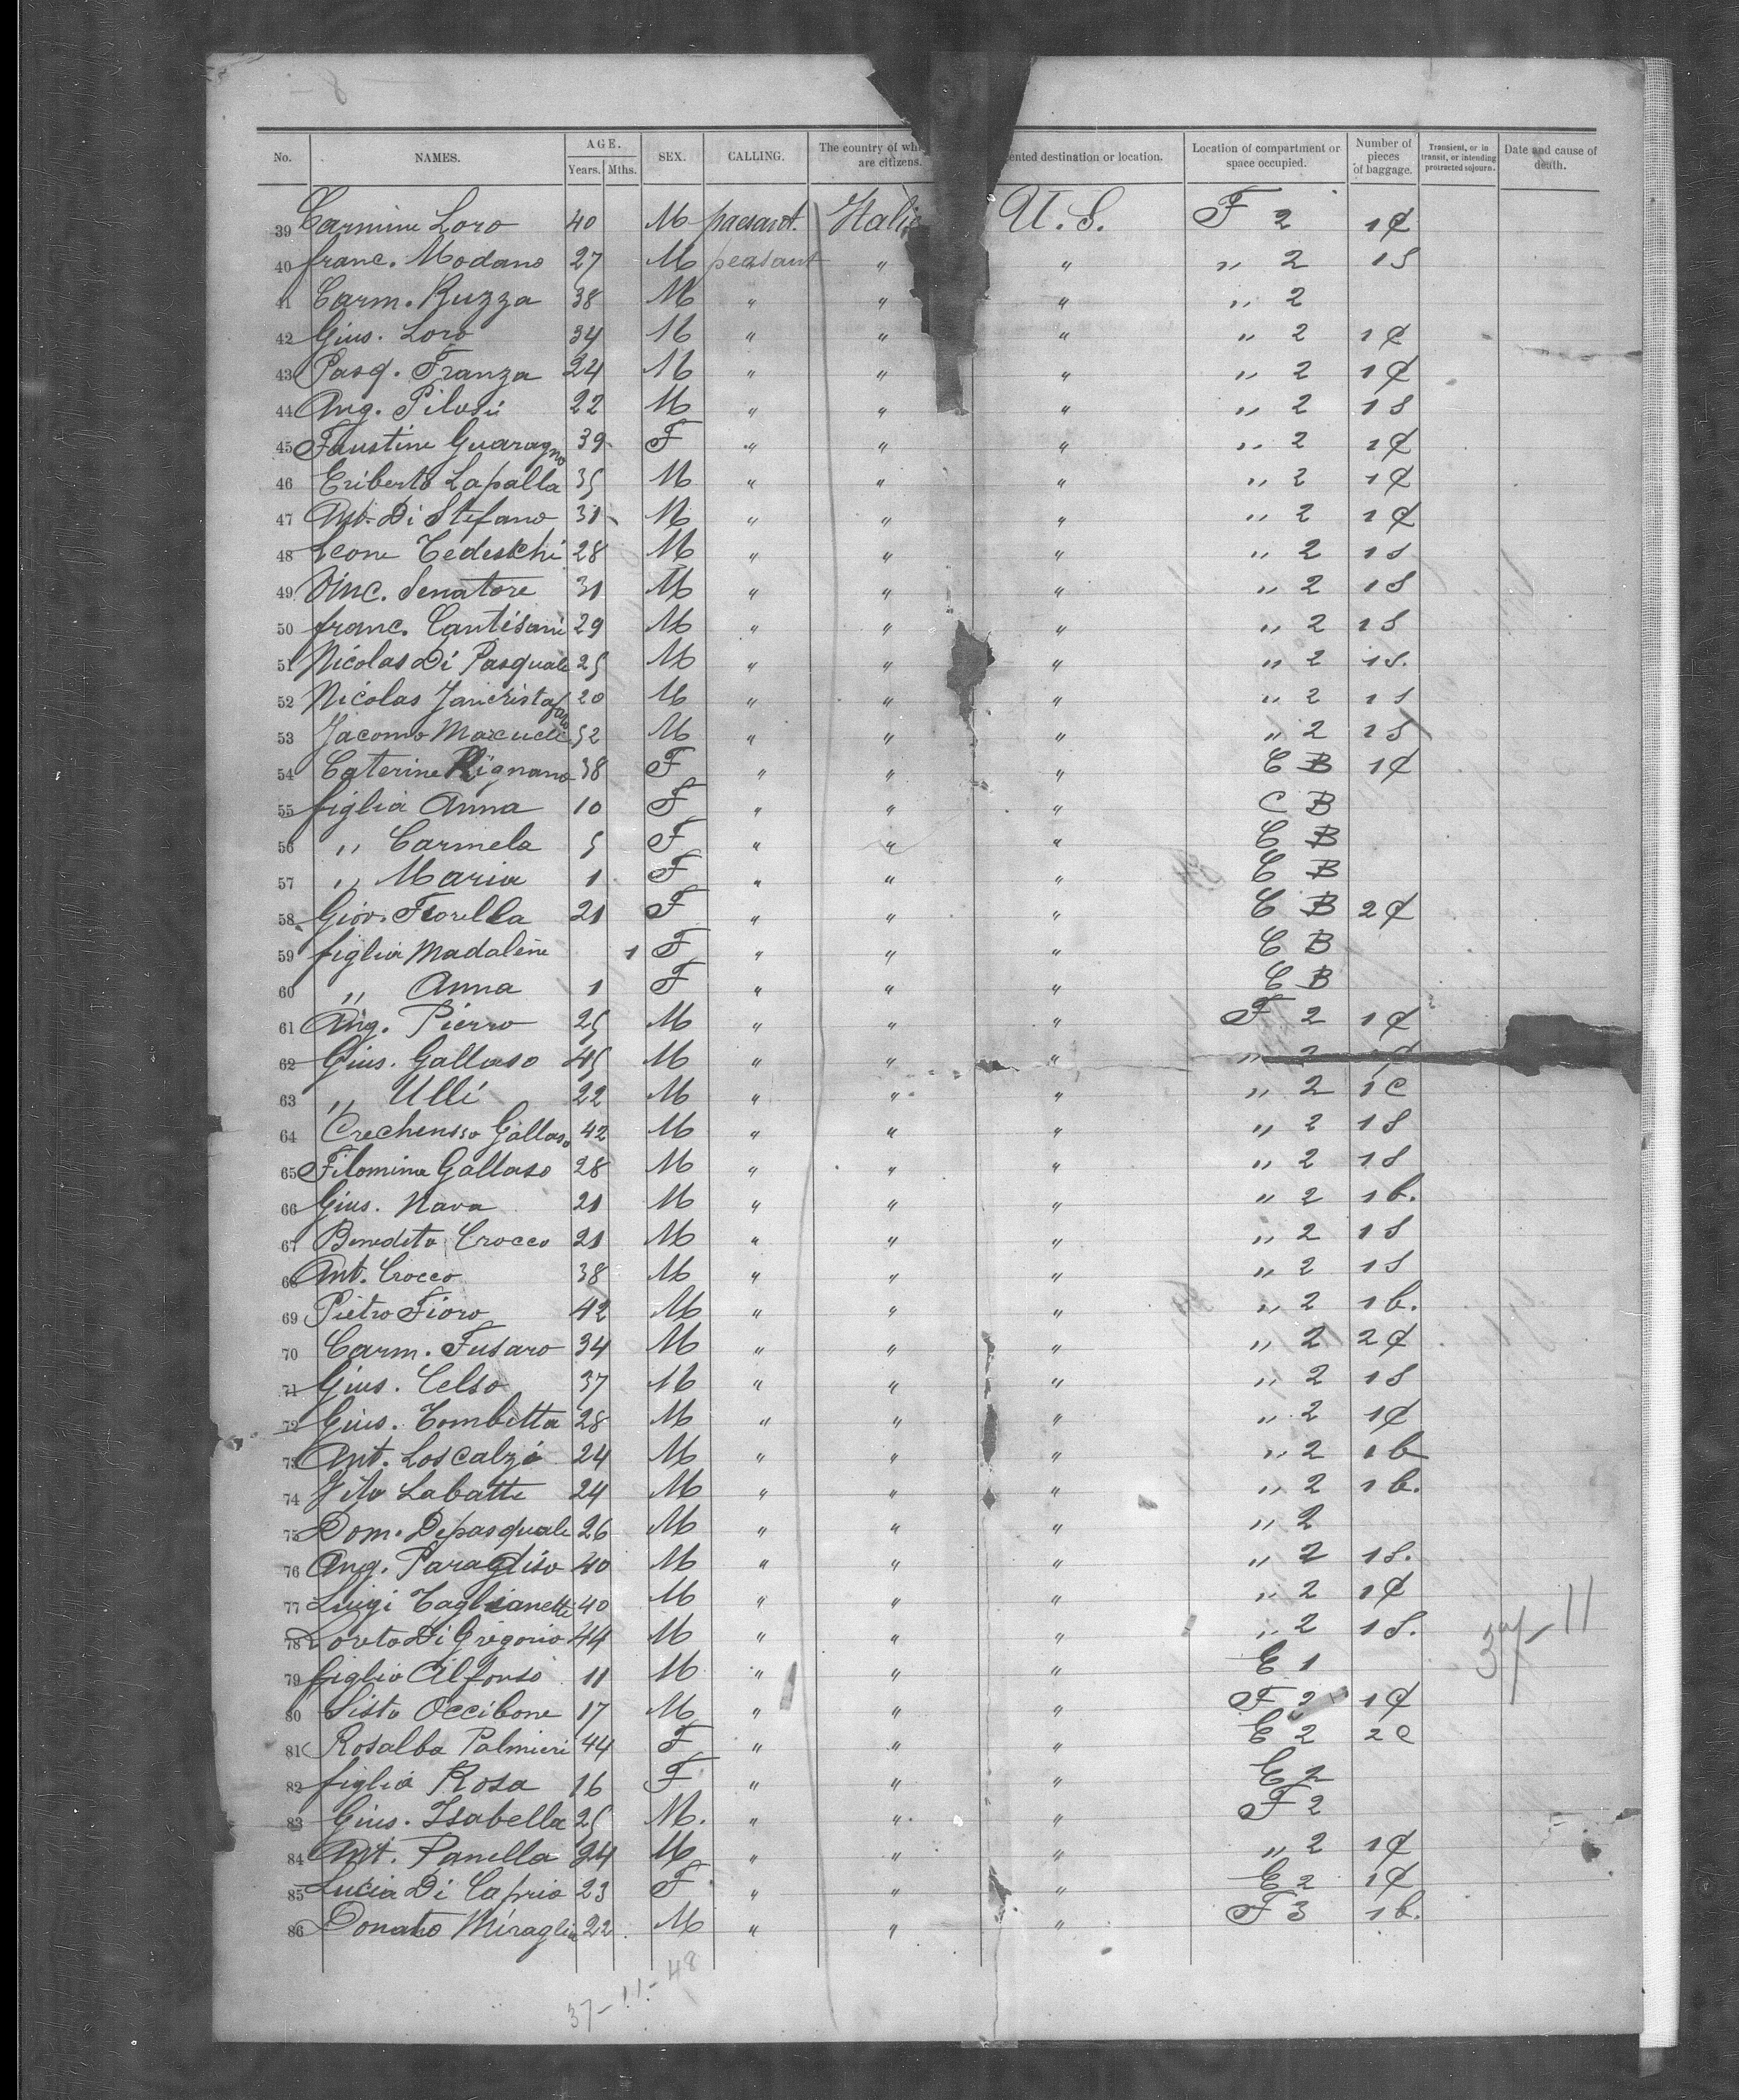 No. NAMES. AGE. Years. Mths. SEX. CALLING. The country of wh are citizens. ented destination or location. Location of compartment or space occupied. Number of pieces of baggage. Transient, or in transit, or intending protracted sojourn. Date and cause of death.
39 Carmine Loro 40 M Italia U. S. F 2 1 ₵
40 franc. Modano 27 M peasant " " " 2 1 S
41 Carm. Ruzza 38 M " " " " 2
42 Gius. Loro 34 M " " " " 2 1 ₵
43 Pasq. Franza 24 M " " " " 2 1 ₵
44 Ang. Pilosi 22 M " " " " 2 1 S
45 Faustine Guaragno 39 F " " " " 2 1 ₵
46 Eriberto Lapalla 35 M " " " " 2 1 ₵
47 Ant. Di Stefano 31 M " " " " 2 1 ₵
48 Leone Tedeschi 28 M " " " " 2 1 S
49 Vinc. Senatore 31 M " " " " 2 1 S
50 franc. Cantisani 29 M " " " " 2 1 S
51 Nicolas Di Pasquale 25 M " " " " 2 1 S.
52 Nicolas 20 M " " " " 2 1 S
53 Jacomo 52 M " " " " 2 1 S
54 Caterine Rignano 38 F " " " C B 1 ₵
55 figlia Anna 10 F " " " C B
56 " Carmela 5 F " " " C B
57 " Maria 1 F " " " C B
58 Giov. Fiorella 21 F " " " C B 2 ₵
59 figlia Madalene 1 F " " " C B
60 " Anna 1 F " " " C B
61 Ang. Pierro 25 M " " " F 2 1 ₵
62 Gius. Galluso 45 M " " " " 2 1 ₵
63 " Ulli 22 M " " " " 2 1 C
64 Crechenso Galluso 42 M " " " " 2 1 S
65 Filomina Galluso 28 M " " " " 2 1 S
66 Gius. Nava 21 M " " " " 2 1 b.
67 Benedito Crocco 21 M " " " " 2 1 S
68 Ant. Crocco 38 M " " " " 2 1 S
69 Pietro Fioro 42 M " " " " 2 1 b.
70 Carm. Fusaro 34 M " " " " 2 2 ₵
71 Gius. Celso 37 M " " " " 2 1 S
72 Gius. Tombetta 28 M " " " " 2 1 ₵
73 Ant. Loscalzo 24 M " " " " 2 1 b
74 Vito Labatte 24 M " " " " 2 1 b.
75 Dom. Depasquale 26 M " " " " 2
76 Ang. Paradiso 40 M " " " " 2 1 S.
77 Luigi Taglianetti 40 M " " " " 2 1 ₵
78 Loreto Di Gregorio 44 M " " " " 2 1 S.
79 figlio Alfonso 11 M " " " E 1
80 Sisto Occibone 17 M " " " F 2 1 ₵
81 Rosalba Palmieri 44 F " " " E 2 2 C
82 figlia Rosa 16 F " " " E 2
83 Gius. Isabella 25 M. " " " F 2
84 Ant. Panella 24 M " " " " 2 1 ₵
85 Lucia Di Caprio 23 F " " " E 2 1 ₵
86 Donato Miraglia 22 M " " " F 3 1 b.
37 - 11 - 48